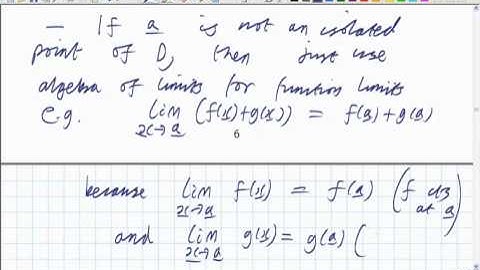 — If a is not an isolated
point of D, then just use
algebra of limits for function limits
e.g. lim x→a (f(x)+g(x)) = f(a)+g(a)
because lim x→a f(x) = f(a) (f cts at a)
and lim x→a g(x) = g(a) (